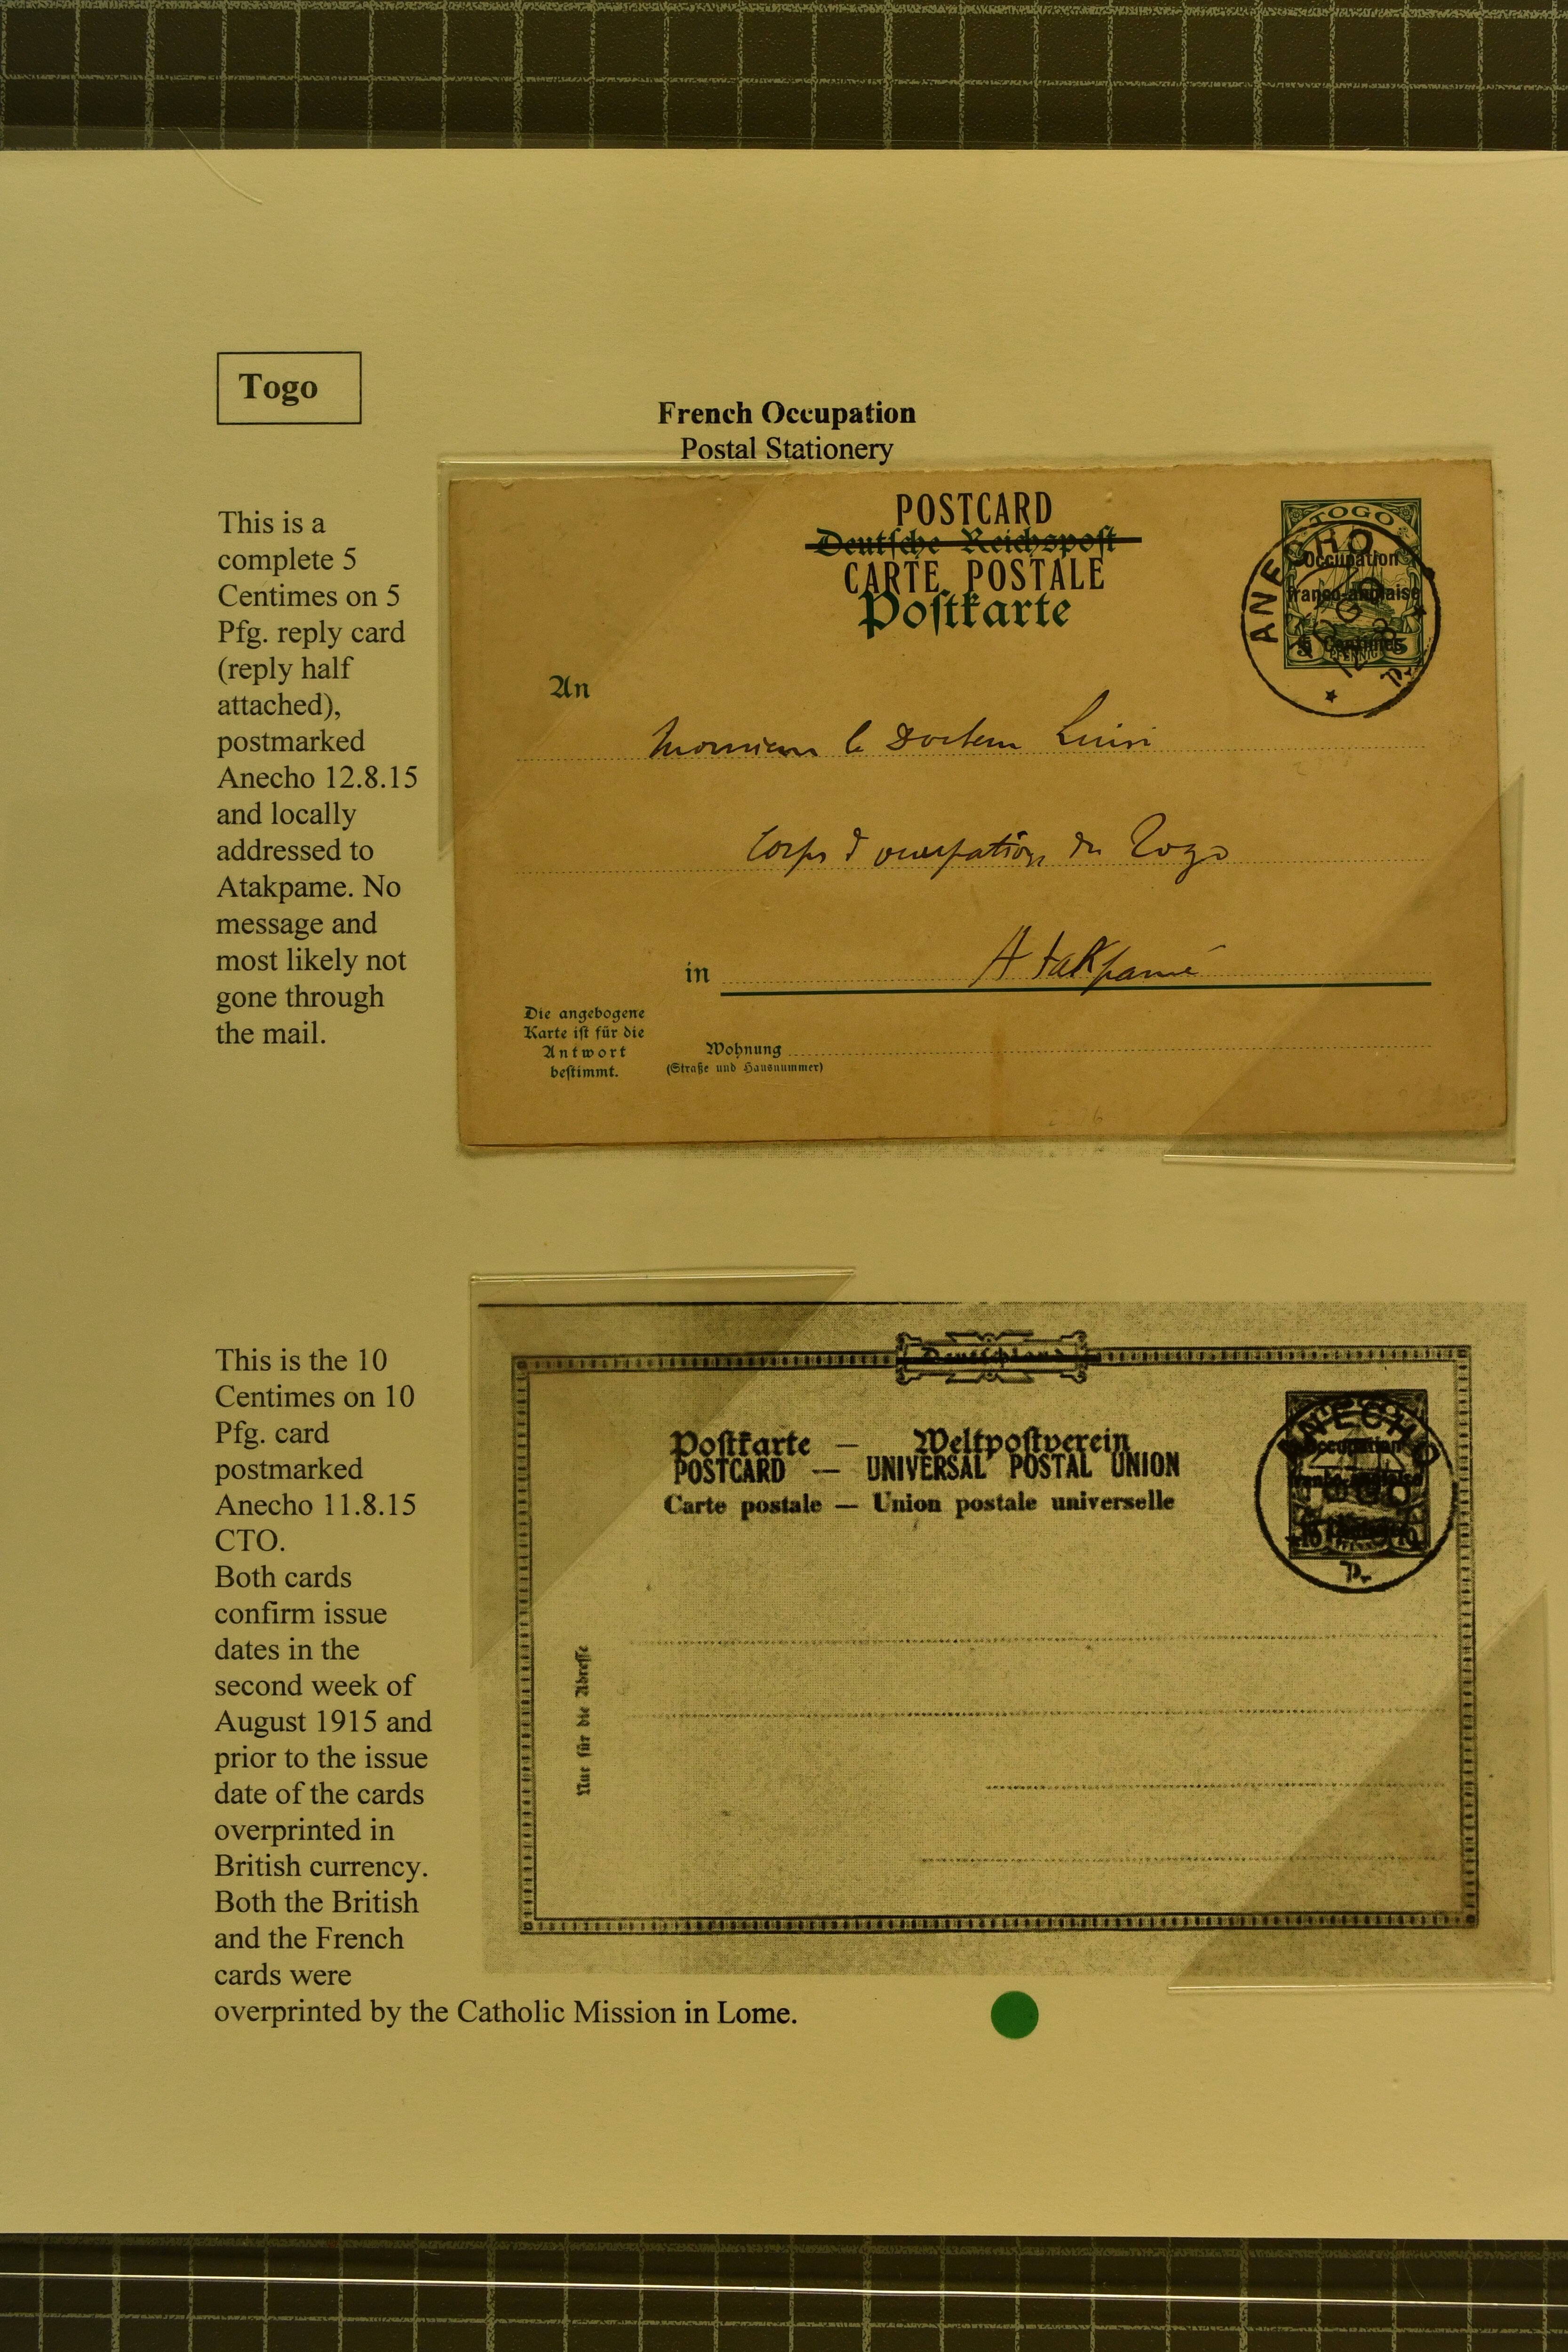 Togo
French Occupation
Postal Stationery
This is a
complete 5
Centimes on 5
Pfg. reply card
(reply half
attached),
postmarked
Anecho 12.8.15
and locally
addressed to
Atakpame. No
message and
most likely not
gone through
the mail.
POSTCARD
Deutsche Reichspost
CARTE POSTALE
Postkarte
TOGO
Occupation
franco-anglaise
5 Centimes 5
PFENNIG
ANECHO
TOGO
An
Monsieur le Docteur
Corps d'occupation du Togo
in Atakpamé
Die angebogene
Karte ist für die
Antwort
bestimmt.
Wohnung
(Straße und Hausnummer)
This is the 10
Centimes on 10
Pfg. card
postmarked
Anecho 11.8.15
CTO.
Both cards
confirm issue
dates in the
second week of
August 1915 and
prior to the issue
date of the cards
overprinted in
British currency.
Both the British
and the French
cards were
overprinted by the Catholic Mission in Lome.
Deutschland
Postkarte — Weltpostverein
POSTCARD — UNIVERSAL POSTAL UNION
Carte postale — Union postale universelle
ANECHO
Occupation
franco-anglaise
Nur für die Adresse